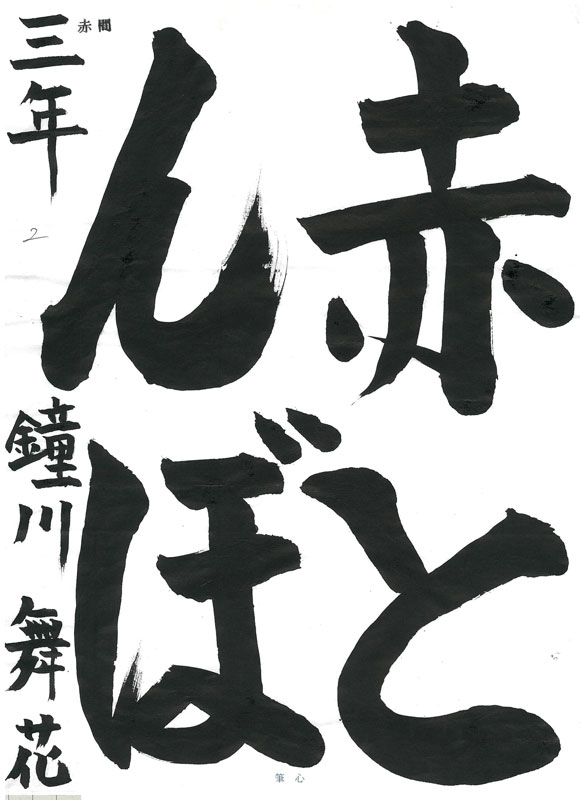 赤と
んぼ
三年 鐘川 舞花
赤間
2
筆心